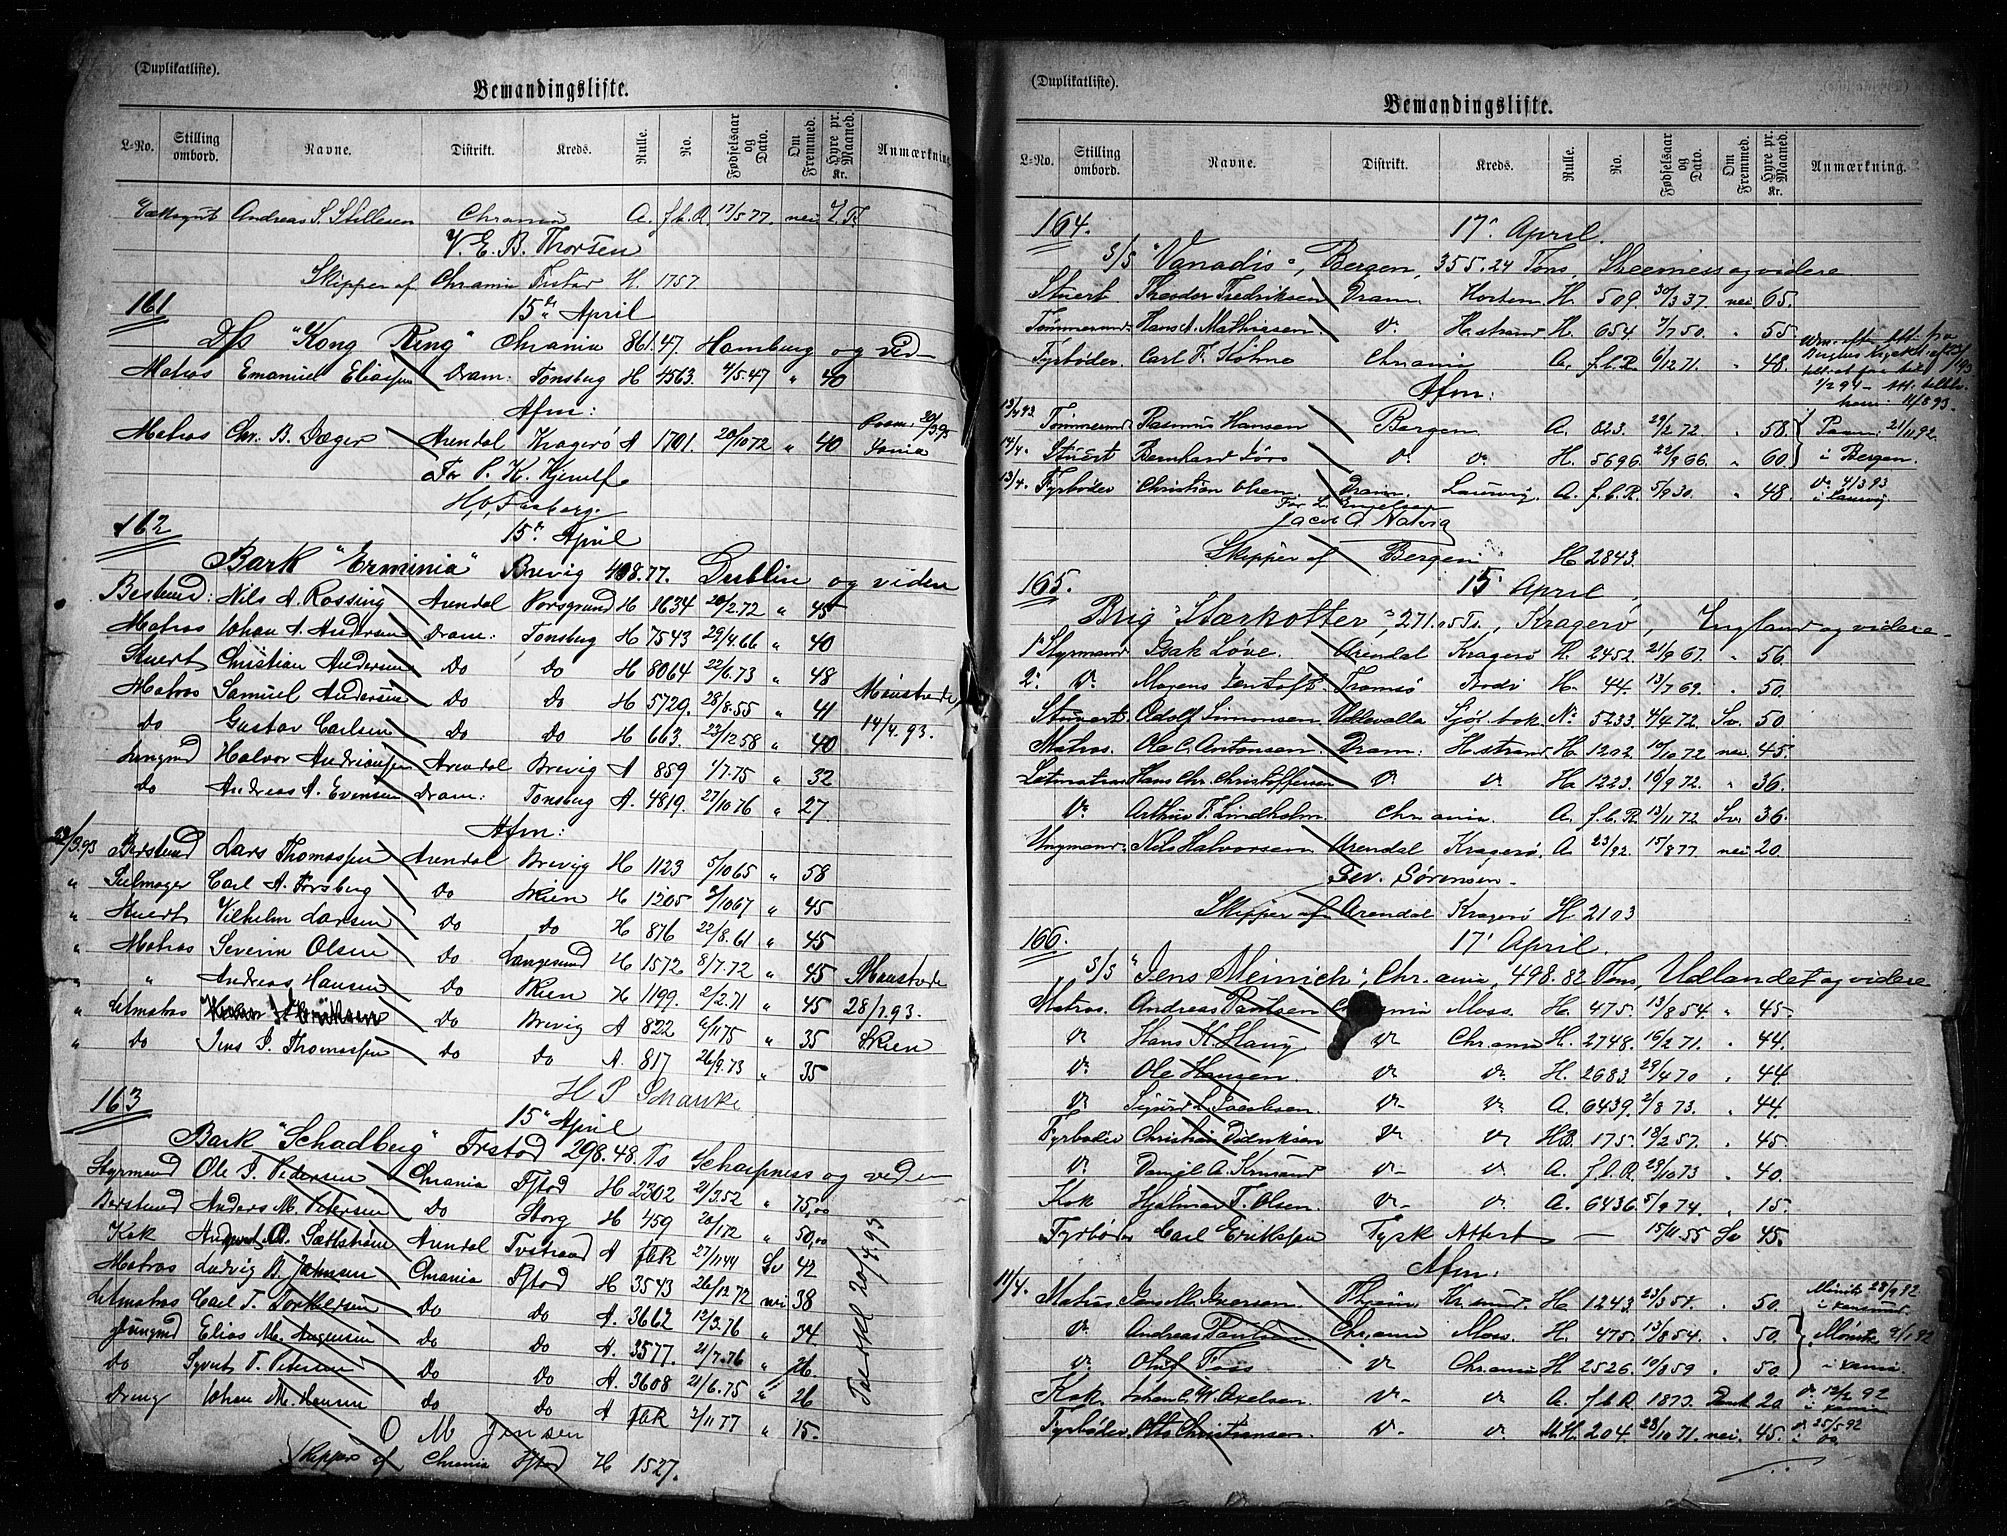 (Duplikatliste).
Bemandingsliste.
L-No. Stilling ombord. Navne. Distrikt. Kreds. Rulle. No. Fødselsaar og Dato. Om Fremmed. Hyre pr. Maaned. Kr. Anmærkning
Andreas S. Stillesen Chrania A. f.b.R. 17/5 77 nei
E. B. Thorsen
Skipper af Chrania Fstad H. 1757
161 15de April
D/s "Kong Ring" Chrania 861.47. Hamburg og vid-
Matros Emanuel Eliassen Dram: Tonsberg H 4563. 4/5.47 " 40
Afm:
Matros Chr. B. Dæger Arendal Kragerø A 1701. 20/10 72 " 40
For P. K. Hjerulf.
162 15de April
Bark "Erminia" Brevig 408.77. Dublin og videre
Bestmd: Nils A. Rossing Arendal Porsgrund H 1634 20/2.72 " 45
Matros Johan A. Andersen Dram: Tonsberg H 7543 29/4.66 " 40
Stuert Christian Andersen Do Do H 8064 22/6.73 " 48
Matros Samuel Andersen Do Do H 5729. 28/8.55 " 41 Mønstrede
do Gustav Carlsen Do Do H 663. 23/12 58 " 40 14/4.93.
Jungmd Halvor Andriassen Arendal Brevig A 859 1/7.75 " 32
do Andreas A. Evensen Dram: Tonsberg A. 4819. 27/10 76 " 27.
Afm:
29/3.93 Bestmd Lars Thomassen Arendal Brevig H 1123 5/10 65 " 58
" Seilmager Carl A. Forsberg Do Skien H 1205 9/10 67 " 45
" Stuert Vilhelm Larsen Do Do H 876 22/8.61 " 45
" Matros Severin Olsen Do Langesund H 1572 8/7.72 " 45 Mønstrede
" Andreas Hansen Do Skien H 1199. 2/2.71 " 45 28/1.93.
" Letmatros Eriksen Do Brevig A 822 6/11 75 " 35 Skien
" do Jens P. Thomassen Do Do A. 817 26/9.73 " 35
H P Schanke
163 15de April
Bark "Schadberg" Frstad 298.48. Ts Scharpness og videre
Styrmand Ole J. Pedersen Chrania Fstad H 2302 2/3.52 " 75,00
Bestmd Anders M. Petersen Do Storg H 459 20/1 72 " 50,00
Kok August A. Sættstrøm Arendal Tvstrand A fbR 27/11 44 Sv 42
Matros Ludvig B. Johnsen Chrania Fstad H 3543 26/12 72 nei 38
Letmatros Carl T. Torkelsen Do Do A. 3662 12/3.76 " 34
Jungmd Elias M. Do Do A. 3577. 21/7.76 " 26.
Do Syvert T. Petersen Do Do A. 3608 21/6.75 " 26
Dreng Johan M. Hansen Do Do A fbR 2/11 77 " 15.
O M Jensen
Skipper af Chrania Fstad H 1527.
20/4.93
(Duplikatliste).
Bemandingsliste.
L-No. Stilling ombord. Navne. Distrikt. Kreds. Rulle. No. Fødselsaar og Dato. Om Fremmed. Hyre pr. Maaned. Kr. Anmærkning.
164. 17' April.
S/S "Vanadis", Bergen, 355.24 Tons, Sheerness og videre
Stuert Theodor Fredriksen Dram. Horten H. 509. 30/3 37. nei 65.
Tømmermd. Hans A. Mathisen Do Hstrand H. 654. 7/7 50. " 55
Fyrbøder. Carl F. Kohne Chrania A. f.b.R. 6/12 71. " 48.
Afm:
13/4 93. Tømmermd Rasmus Hansen Bergen A. 823. 29/2 72 . 58. Paam: 21/11 92.
14/4. Stuert Bernhard Do Do H. 5696. 22/9 66. " 60. i Bergen.
13/4. Fyrbøder Christian Olsen. Dram. Laurvig. A. f.b.R. 5/9 30. " 48. Do 4/3 93 i Laurvig
For L. Engelsen
Jacob A. Natvig
Skipper af Bergen H 2843.
165. 15' April
Brig "Stærkotter", 271.05 Ts, Kragerø, England og videre-
1' Styrmand Isak Løve. Arendal Kragerø H. 2452. 21/9 67. " 56.
2' Do Mogens Tromsø Bodø H. 44. 13/7 69. . 50.
Stuert. Adolf Simonsen Uddevalla Sjøf. bok. No 5233. 4/4 72. Sv. 50
Matros. Ole C. Antonsen Dram: Hstrand H. 1202. 12/10 72 nei 45.
Letmatros Hans Chr. Christoffersen Do Do H. 1223. 16/9 72. " 36.
Do Arthur F. Lindholm Chrania. A. f.b.R. 13/11 72 Sv. 36.
Ungmand. Nils Halvorsen Arendal Kragerø, A. 23/92. 15/8 77. nei 20.
Lev. Sørensen-
Skipper af Arendal Kragerø H 2103
166. 17' April.
S/S "Jens Meinich", Chr.ania, 498.82 Tons, Udlandet og videre.
Matros. Andreas Paulsen Moss. H. 475. 13/8 54. " 45-
Do Hans H. Haug Do Chrania H. 2748. 16/2 71. " 44.
Do Ole Hansen. Do Do H. 2683. 29/4 70 " 44.
Do Sigurd L. Jacobsen. Do Do A. 6439. 2/8 73. " 44.
Fyrbøder Christian Didriksen Do Do HB. 175. 18/2 57. " 45.
Do Daniel A. Do Do A. f.b.R. 29/10 73 " 40.
Kok Hjalmar T. Olsen. Do Do A. 6436. 5/9 74. " 15.
Fyrbøder Carl Eriksen Tysk Attest — 15/11 55 Sv 45.
Afm:
11/4. Matros. Jens M. Iversen. Thjem Kr.sund. H. 1243. 23/3 54. " 50. Mönst 28/9 92
Do Andreas Paulsen Chrania Moss. H. 475. 13/8 54. " 50. Mönst
Do Oluf Foss Do Chrania H 2526. 19/8 59 . 50.
Kok. Johan C. W. Axelsen. Do Do A. f.b.R. 1873. Dansk 20
Fyrbøder. Otto Christiansen. Do Do M.H. 204. 23/10 71. nei. 45. Do 25/5 92